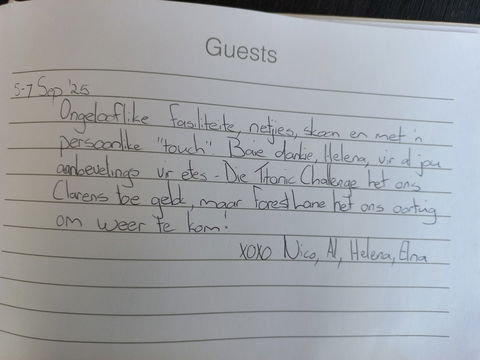 Guests
5-7 Sep '25
Ongelooflike fasiliteite, netjies, skoon en met 'n
persoonlike "touch" Baie dankie, Helena, vir al jou
aanbevelings vir etes - Die Titanic Challenge het ons
Clarens toe gelok, maar Forest Lane het ons oortuig
om weer te kom!
xoxo Nico, Al, Helena, Elna